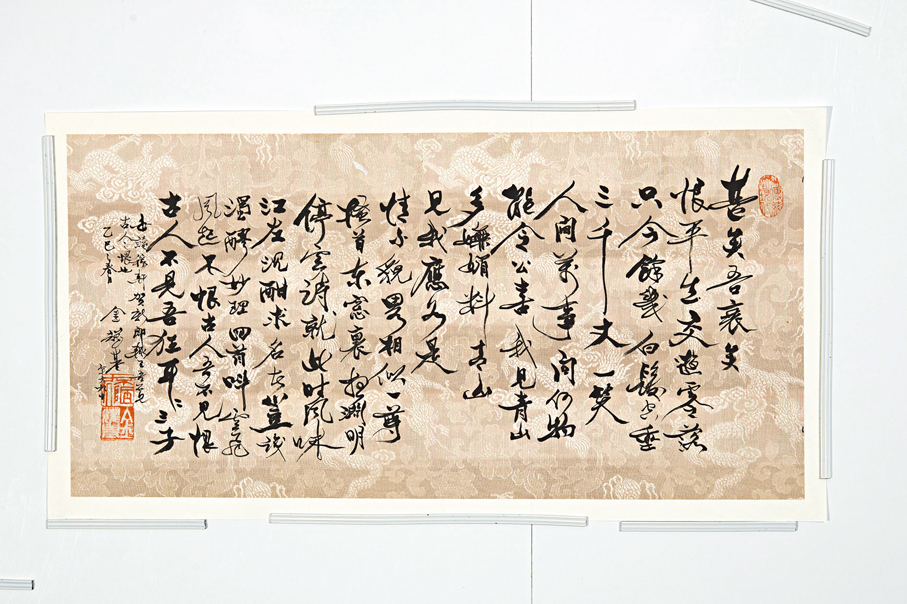 甚矣吾衰矣
恨平生交遊零落
只今餘幾白髮空垂
三千丈一笑
人間萬事問何物
能令公喜我見青山
多嫵媚料青山
見我應如是
情与貌畧相似一尊
搔首東窓裏想淵明
停雲詩就此時風味
江左沉酣求名者豈識
濁醪妙理回首叫雲飛
風起不恨古人吾不見恨
古人不見吾狂耳二三子
稼軒賀新郎
乙巳之春
金